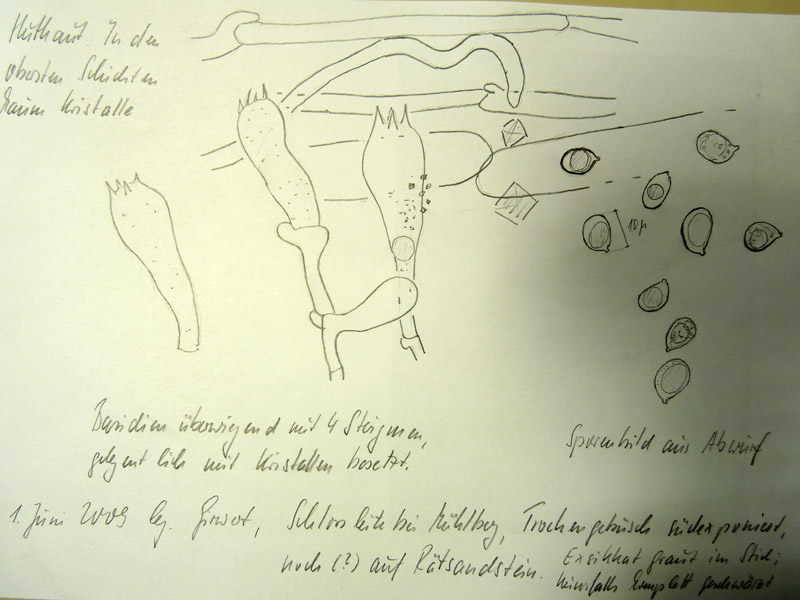 Huthaut. In den
obersten Schichten
kaum Kristalle
10µ
Basidien überwiegend mit 4 Sterigmen,
gelegentlich mit Kristallen besetzt.
Sporenbild aus Abwurf
1. Juni 2009 leg. Girwert, Schlossleite bei Mühlberg, Trockengebüsch südexponiert,
noch (?) auf Rätsandstein. Exsikkat graut im Stiel;
keinesfalls komplett geschwärzt